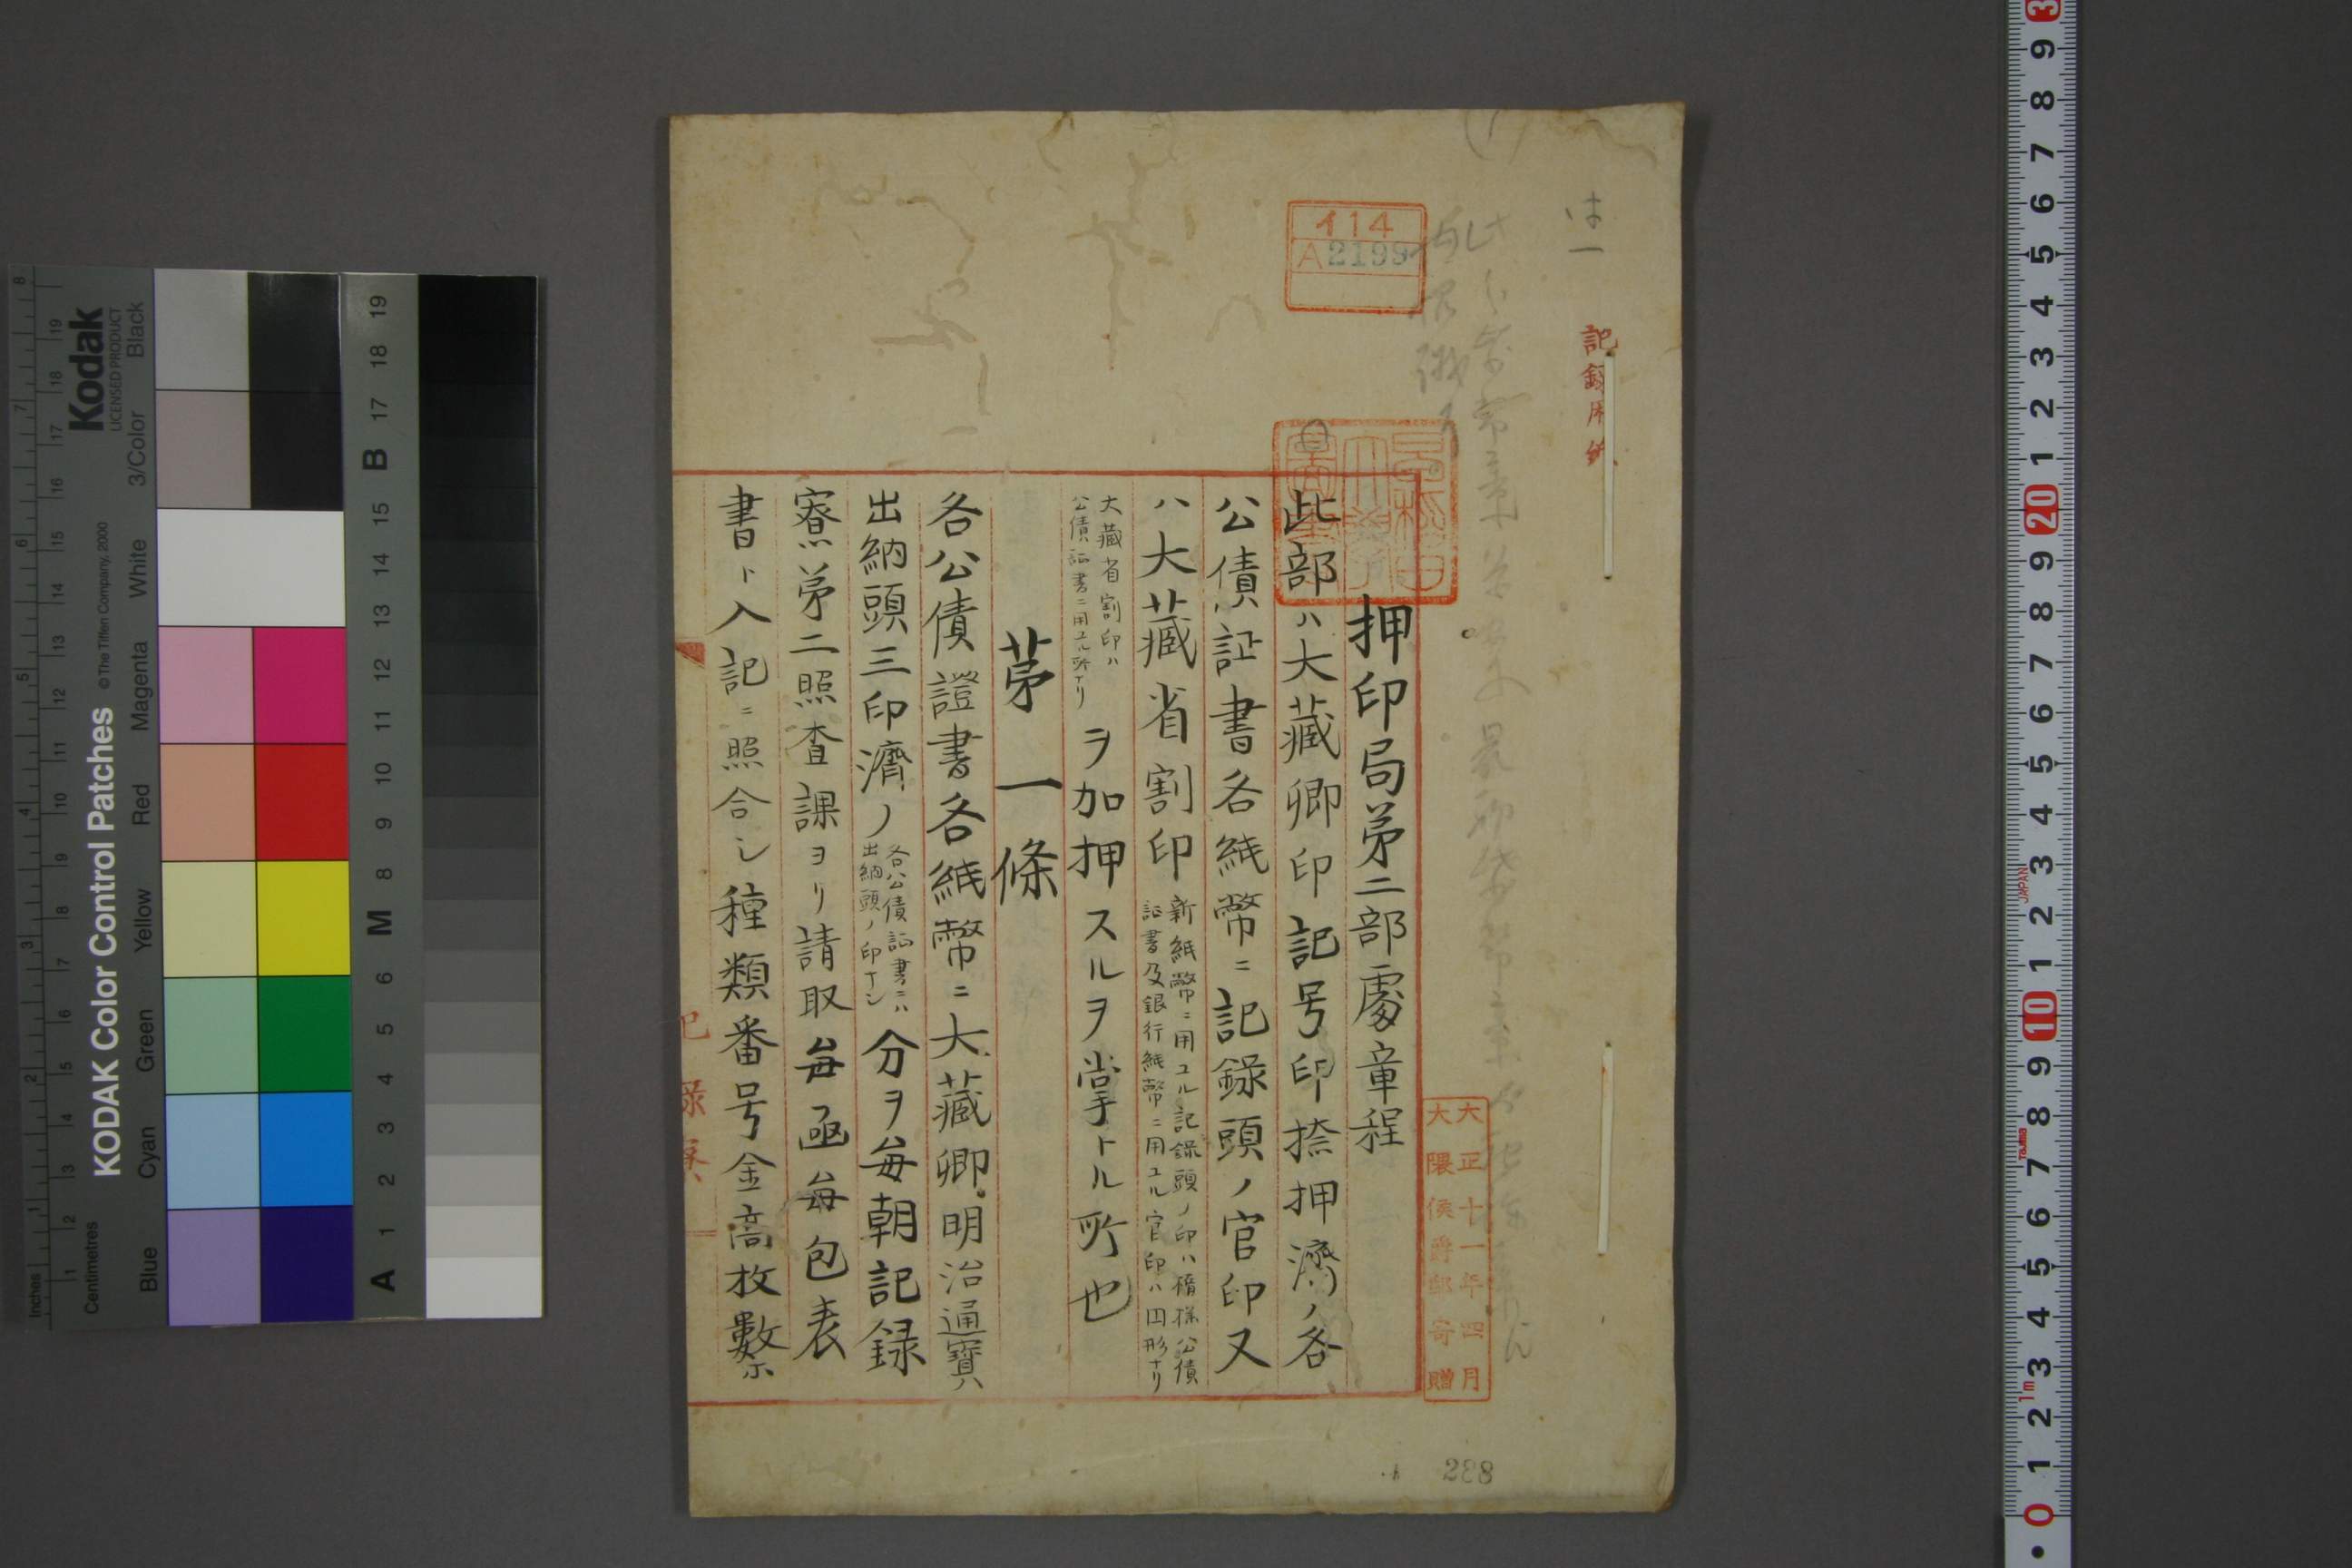 は一
記録用紙
イ14
A2199
大正十一年四月
大隈侯爵郎寄贈
押印局第二部處章程
此部ハ大藏卿印記号印捺押濟ノ各
公債証書各紙幣ニ記録頭ノ官印又
ハ大藏省割印
新紙幣ニ用ユル記録頭ノ印ハ楕樣公債
証書及銀行紙幣ニ用ユル官印ハ円形ナリ
大藏省割印ハ
公債証書ニ用ユル所ナリ
ヲ加押スルヲ掌トル所也
第一條
各公債證書各紙幣ニ大藏卿明治通寳
出納頭三印濟ノ
各公債証書ニハ
出納頭ノ印ナシ
分ヲ毎朝記録
寮第二照査課ヨリ請取毎凾毎包表
書ト入記ニ照合シ種類番号金高枚數
記録寮
288
Kodak
LICENSED PRODUCT
KODAK Color Control Patches
©The Tiffen Company, 2000
Inches
Centimetres
Blue
Cyan
Green
Yellow
Red
Magenta
White
3/Color
Black
A 1 2 3 4 5 6 M 8 9 10 11 12 13 14 15 B 17 18 19
JAPAN
Tajima
1m